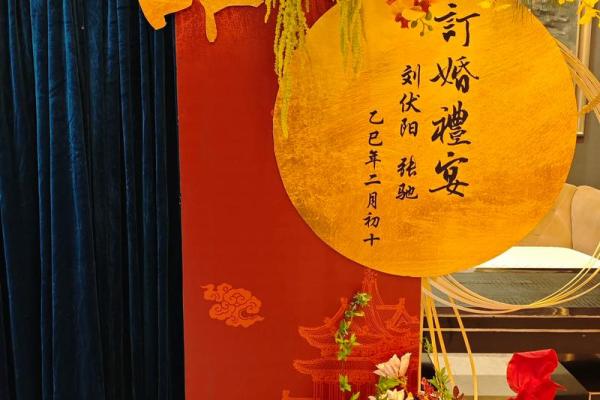 訂婚禮宴
刘伏阳 张驰
乙巳年二月初十